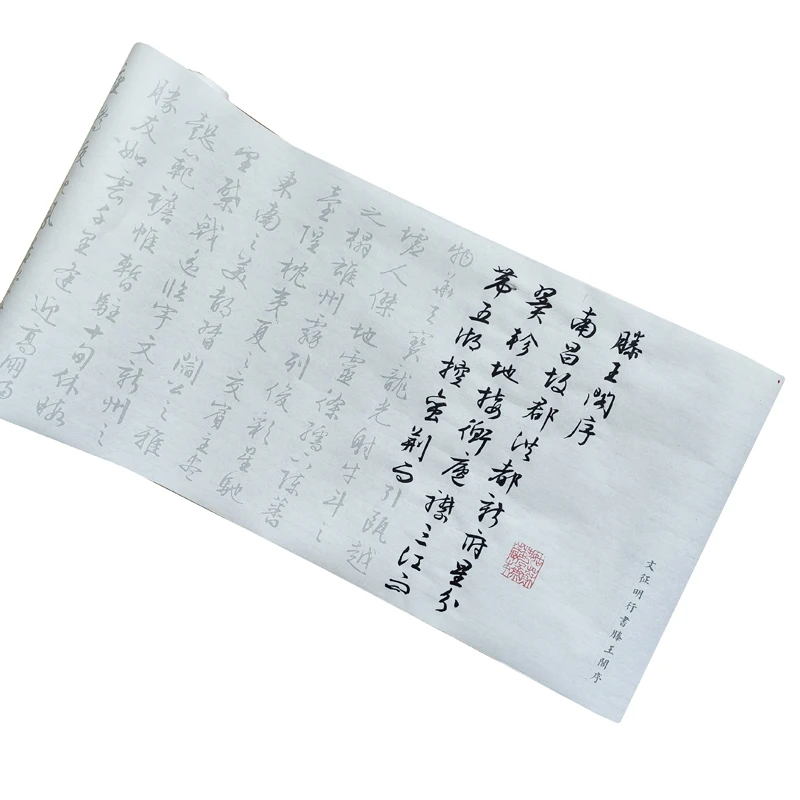 文征明行書滕王閣序
滕王閣序
南昌故郡洪都新府星分
翼軫地接衡廬襟三江而
帶五湖控蠻荊而引甌越
物華天寶龍光射牛斗之
墟人傑地靈徐孺下陳蕃
之榻雄州霧列俊彩星馳
臺隍枕夷夏之交賓主盡
東南之美都督閻公之雅
望棨戟遙臨宇文新州之
懿範襜帷暫駐十旬休暇
勝友如雲千里逢迎高朋滿